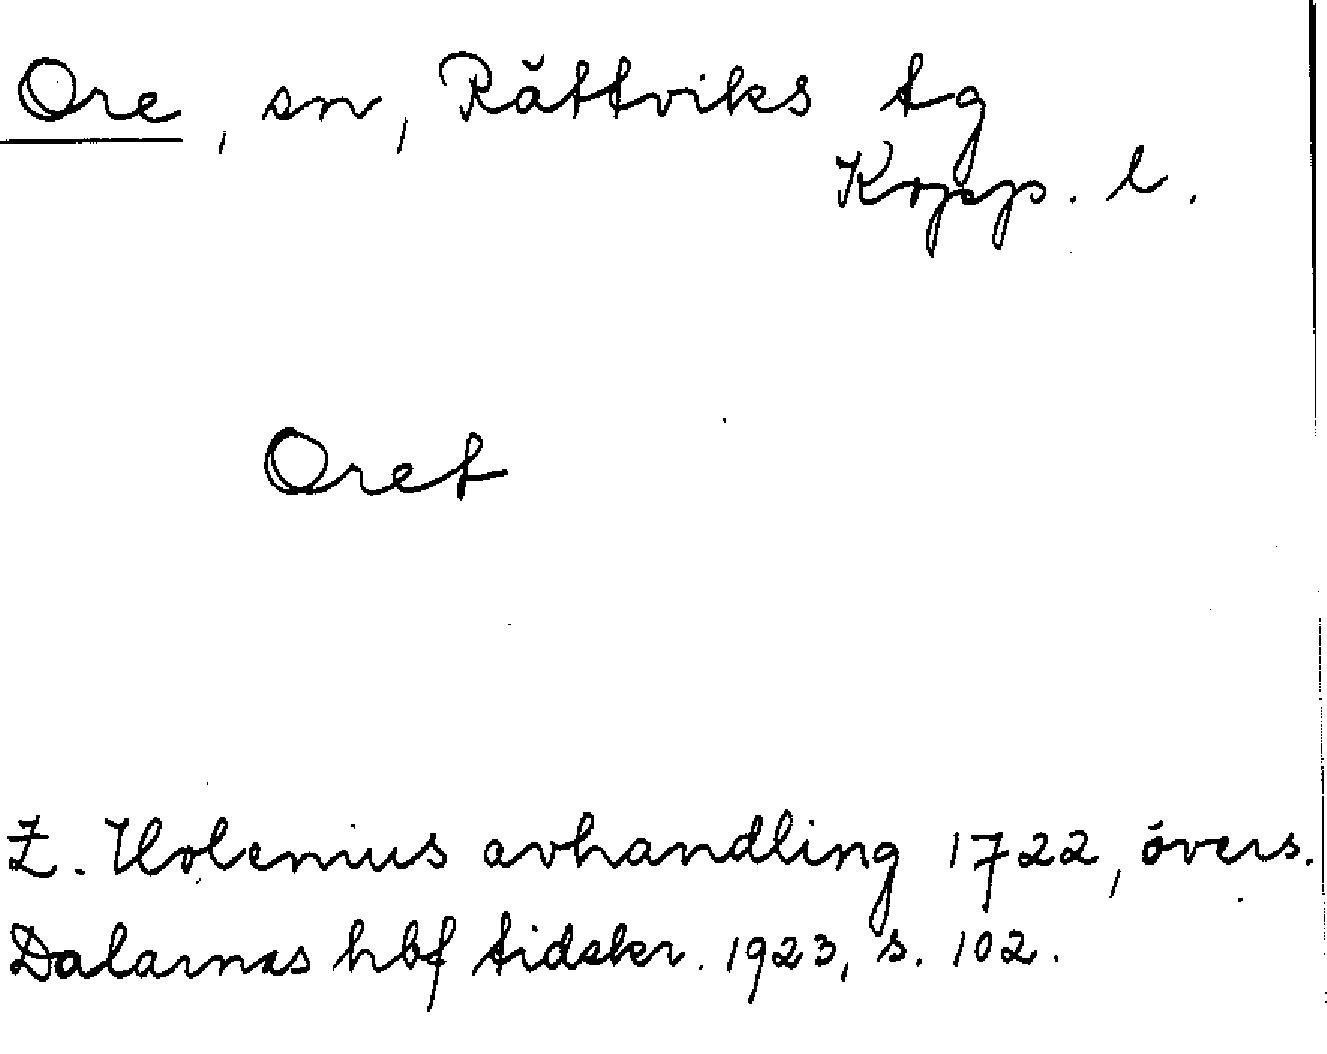 Ore, sn, Rättviks tg
Kopp. l.
Oret
Z. Holenius avhandling 1722, övers.
Dalarnas hbf tidskr. 1923, s. 102.